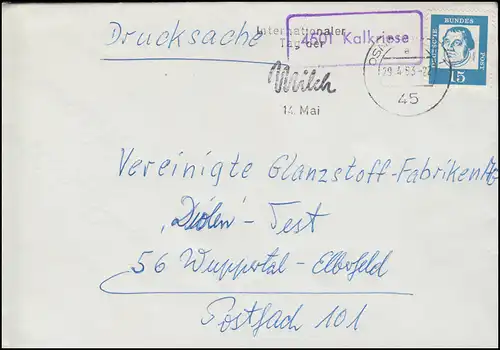 Drucksache
Internationaler
Tag der
Milch
14. Mai
4501 Kalkriese
OSN
e
29.4.63-2
45
BUNDES
POST
15
Vereinigte Glanzstoff-Fabriken AG
"Diolen"-Test
56 Wuppertal-Elberfeld
Postfach 101